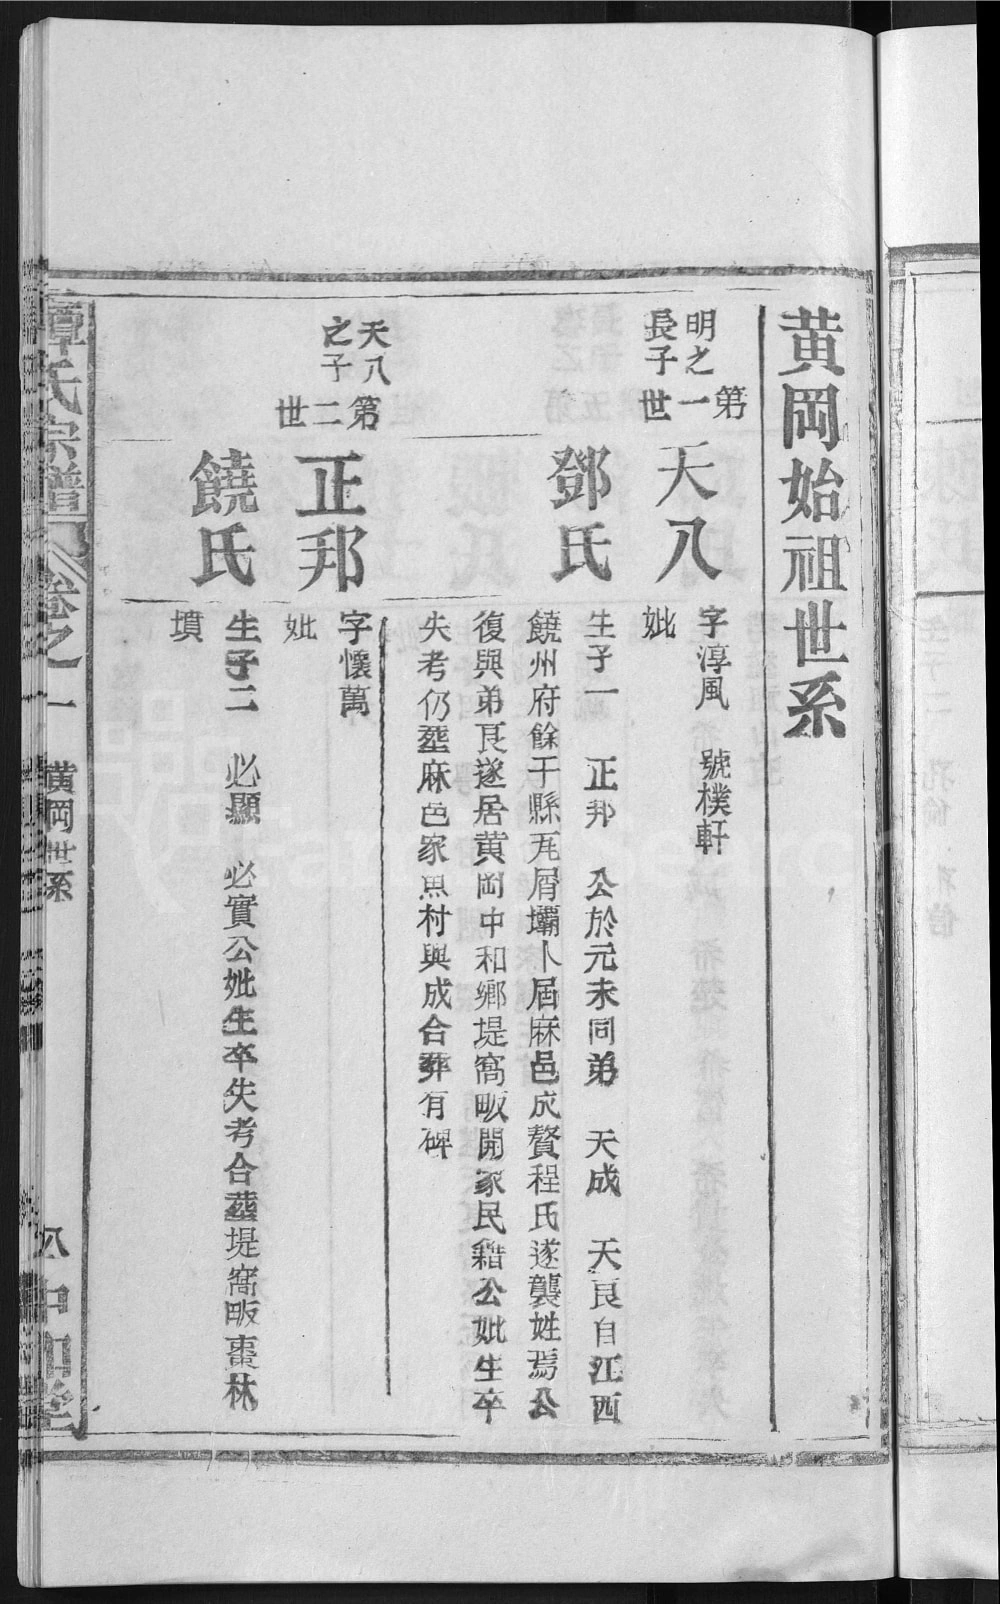 黄岡始祖世系
第一世
明之長子
天八
字淳風　號樸軒
妣
鄧氏
生子一　正邦　公於元末同弟　天成　天良自江西
饒州府餘干縣瓦屑壩卜居麻邑成贅程氏遂襲姓焉公
復與弟良遂居黄岡中和鄉堤窩畈開家民籍公妣生卒
失考仍塟麻邑家魚村與成合葬有碑
第二世
天八之子
正邦
字懷萬
妣
饒氏
生子二　必顯　必實公妣生卒失考合塟堤窩畈棗林
墳
譚氏宗譜
卷之一　黄岡世系
八